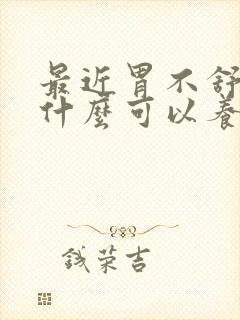 最近胃不舒
什麼可以養
钱荣吉